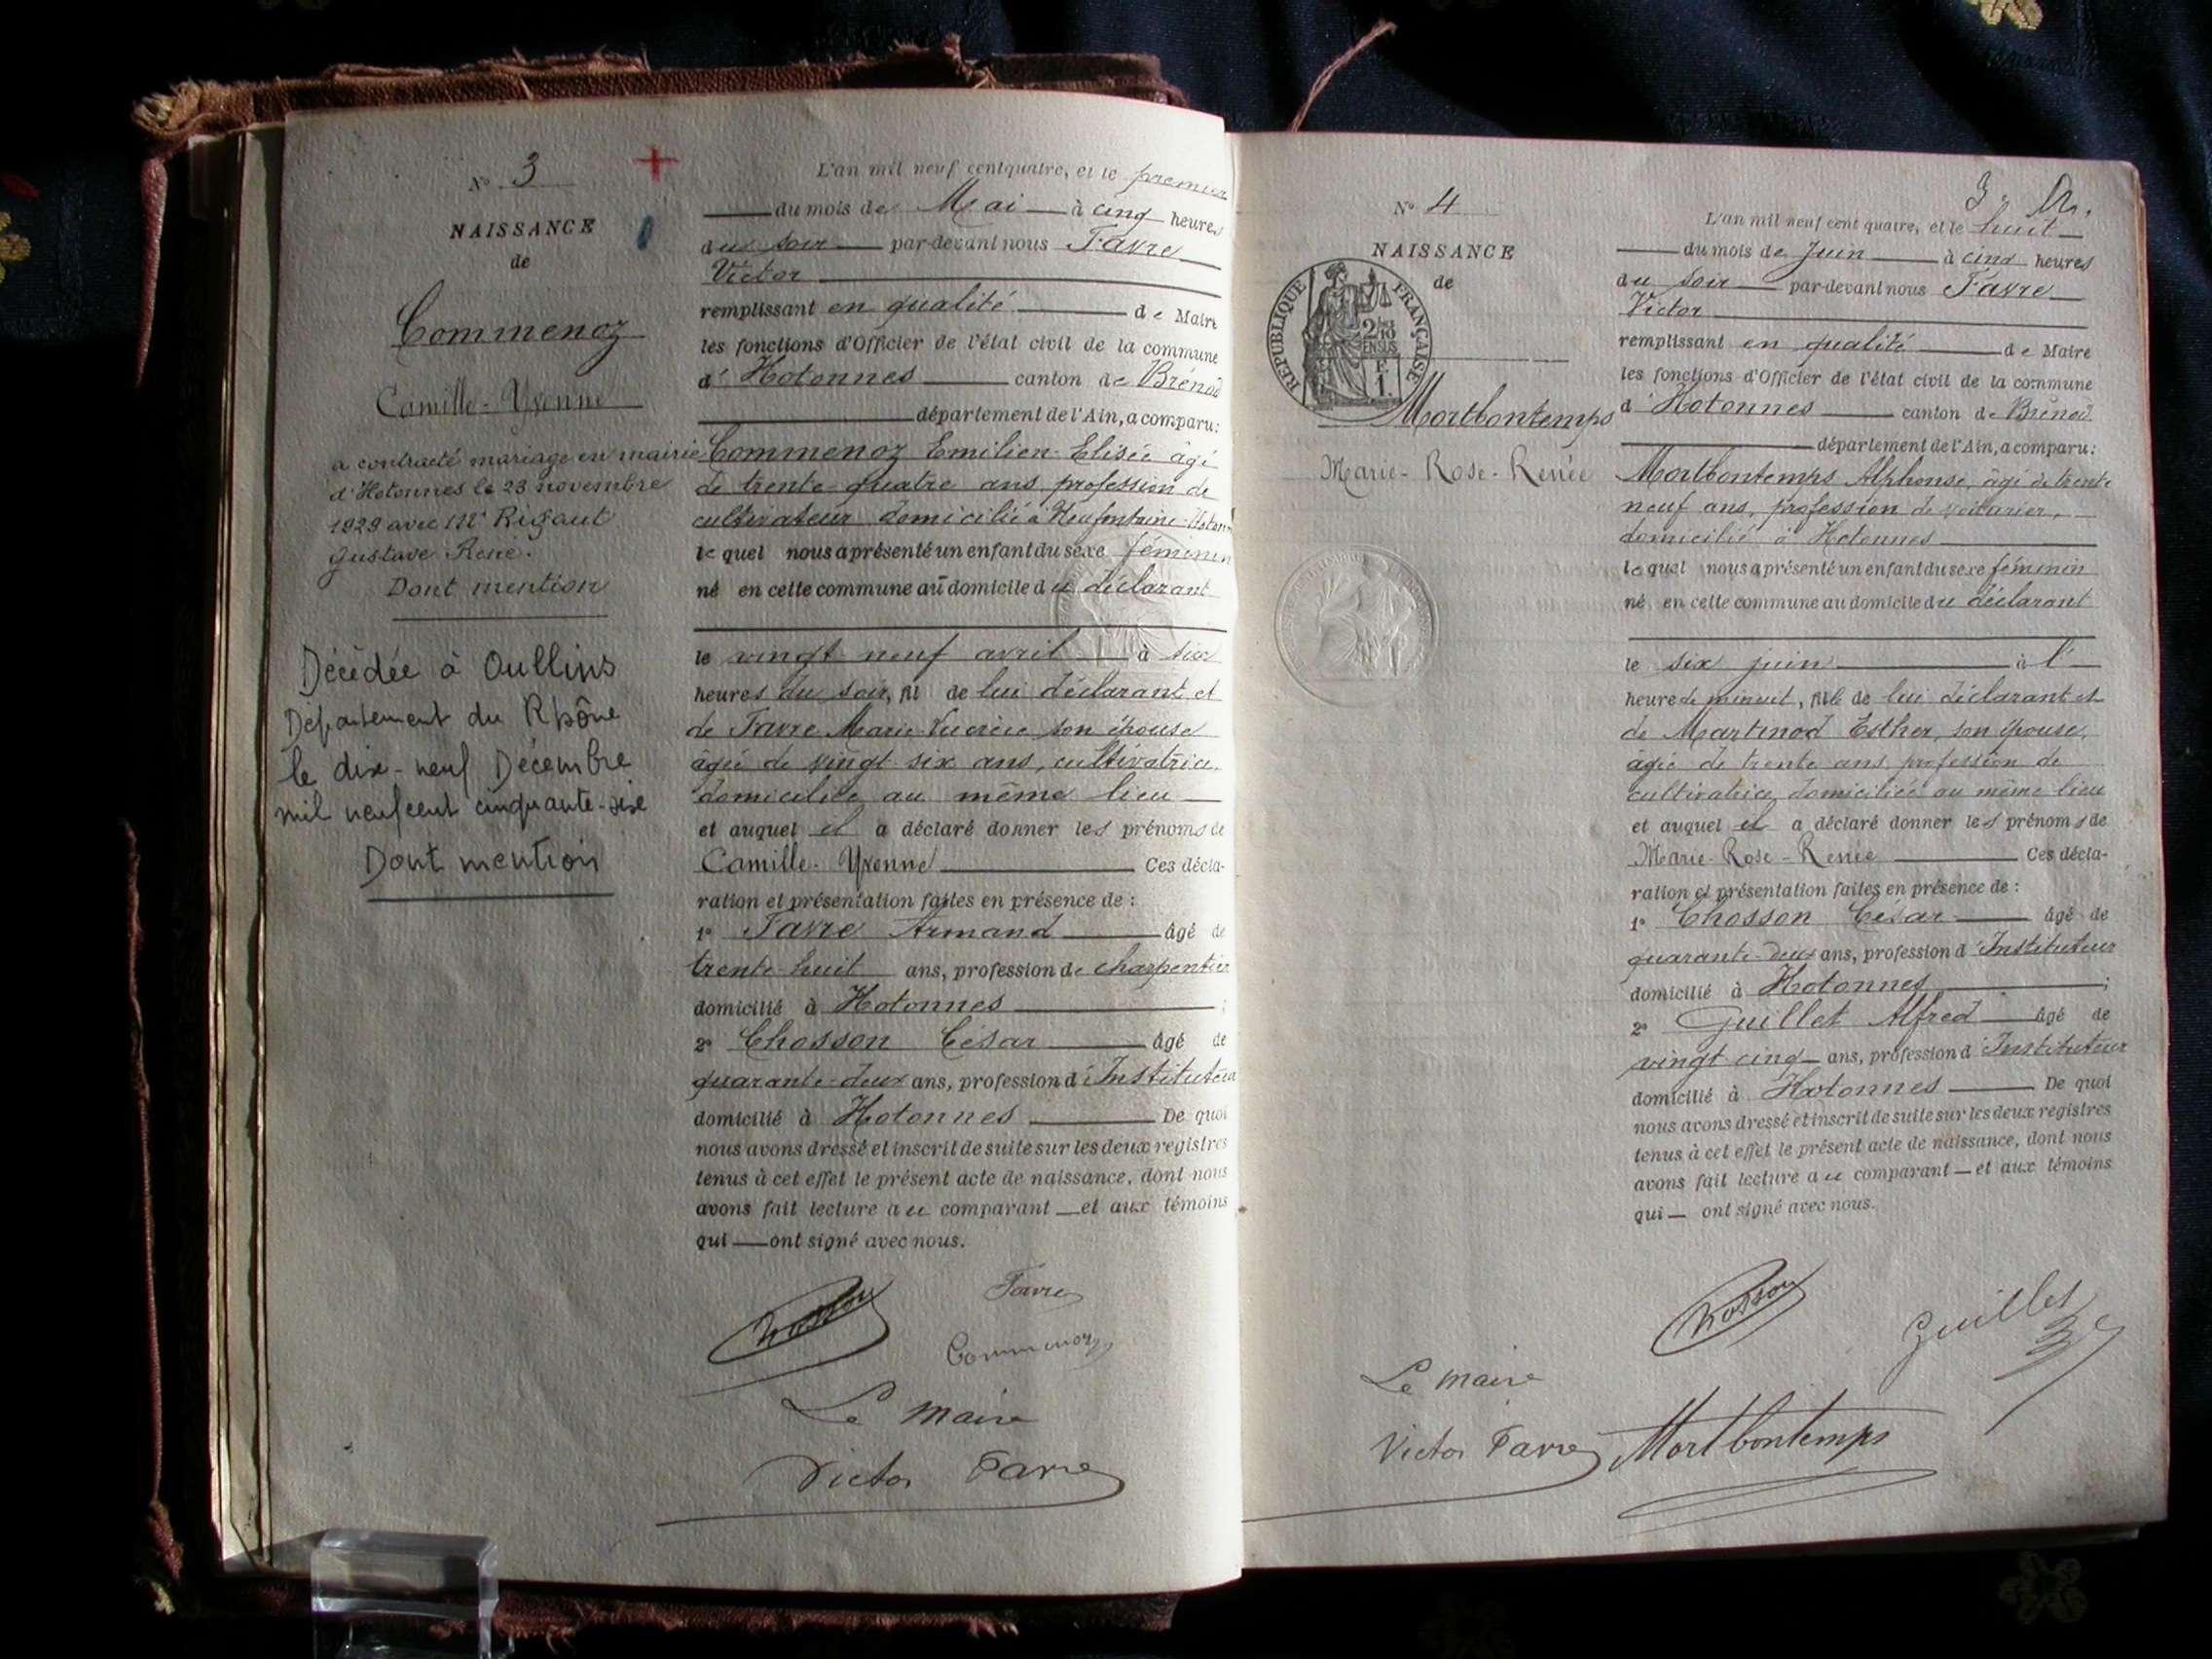 N° 3
NAISSANCE
de
Commenoz
Camille-Yvonne
a contracté mariage en mairie
d'Hotonnes le 23 novembre
1929 avec Mr Rigaut
Gustave René.
Dont mention
Décédée à Oullins
Département du Rhône
le dix-neuf Décembre
mil neuf cent cinquante-six
Dont mention
L'an mil neuf cent quatre, et le premier
du mois de Mai à cinq heures
du soir par-devant nous Favre
Victor
remplissant en qualité de Maire
les fonctions d'Officier de l'état civil de la commune
d' Hotonnes canton de Brénod
département de l'Ain, a comparu:
Commenoz Emilien Elisée âgé
de trente-quatre ans profession de
cultivateur domicilié à
le quel nous a présenté un enfant du sexe féminin
né en cette commune au domicile du déclarant
le vingt neuf avril à six
heures du soir, fil de lui déclarant et
de Favre Marie Lucrèce son épouse
âgée de vingt six ans, cultivatrice
domiciliée au même lieu
et auquel il a déclaré donner les prénoms de
Camille-Yvonne Ces décla-
ration et présentation faites en présence de :
1° Favre Armand âgé de
trente huit ans, profession de charpentier
domicilié à Hotonnes ;
2° Chosson César âgé de
quarante-deux ans, profession d'Instituteur
domicilié à Hotonnes De quoi
nous avons dressé et inscrit de suite sur les deux registres
tenus à cet effet le présent acte de naissance, dont nous
avons fait lecture au comparant et aux témoins
qui ont signé avec nous.
Chosson Favre
Commenoz
Le maire
Victor Favre
N° 4
NAISSANCE
de
RÉPUBLIQUE FRANÇAISE
2/10 EN SUS
F
1.
Mortbontemps
Marie-Rose-Renée
L'an mil neuf cent quatre, et le huit
du mois de Juin à cinq heures
du soir par-devant nous Favre
Victor
remplissant en qualité de Maire
les fonctions d'Officier de l'état civil de la commune
d' Hotonnes canton de Brénod
département de l'Ain, a comparu:
Mortbontemps Alphonse, âgé de trente
neuf ans, profession de voiturier,
domicilié à Hotonnes
le quel nous a présenté un enfant du sexe féminin
né en cette commune au domicile du déclarant
le six juin à l'
heure de minuit, fille de lui déclarant et
de Martinod Esther, son épouse,
âgée de trente ans, profession de
cultivatrice, domiciliée au même lieu
et auquel il a déclaré donner les prénoms de
Marie-Rose-Renée Ces décla-
ration et présentation faites en présence de :
1° Chosson César âgé de
quarante-deux ans, profession d'Instituteur
domicilié à Hotonnes ;
2° Guillet Alfred âgé de
vingt cinq ans, profession d'Instituteur
domicilié à Hotonnes De quoi
nous avons dressé et inscrit de suite sur les deux registres
tenus à cet effet le présent acte de naissance, dont nous
avons fait lecture au comparant et aux témoins
qui ont signé avec nous.
Chosson Guillet
Le maire
Victor Favre Mortbontemps